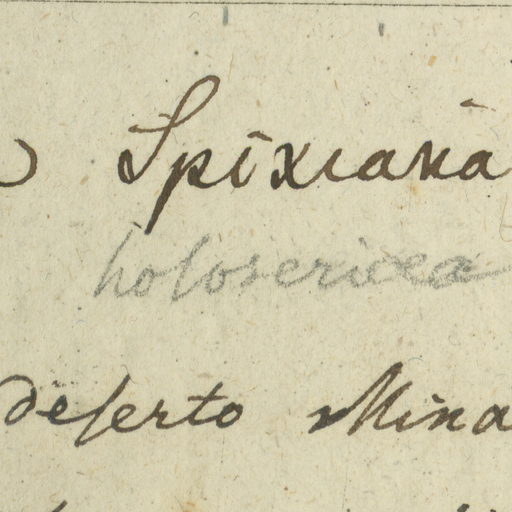 Spixiana
holosericea
deserto Mina